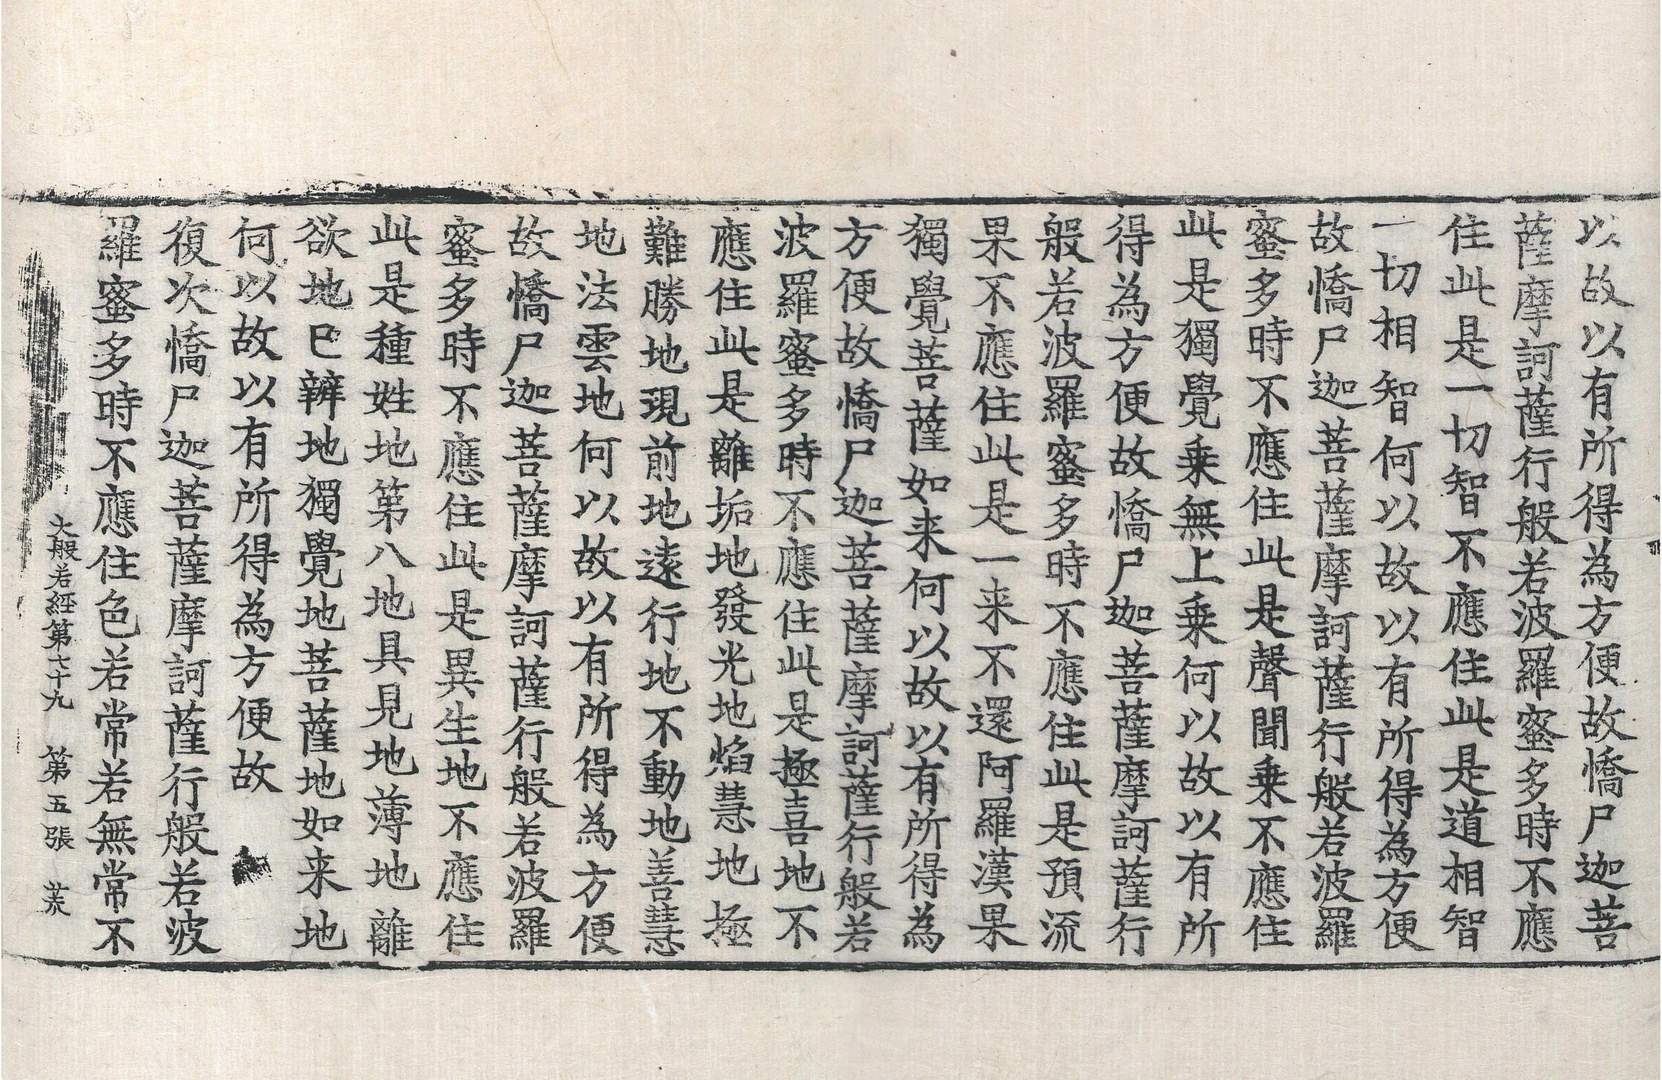 以故以有所得為方便故憍尸迦菩
薩摩訶薩行般若波羅蜜多時不應
住此是一切智不應住此是道相智
一切相智何以故以有所得為方便
故憍尸迦菩薩摩訶薩行般若波羅
蜜多時不應住此是聲聞乘不應住
此是獨覺乘無上乘何以故以有所
得為方便故憍尸迦菩薩摩訶薩行
般若波羅蜜多時不應住此是預流
果不應住此是一来不還阿羅漢果
獨覺菩薩如来何以故以有所得為
方便故憍尸迦菩薩摩訶薩行般若
波羅蜜多時不應住此是極喜地不
應住此是離垢地發光地焰慧地極
難勝地現前地遠行地不動地善慧
地法雲地何以故以有所得為方便
故憍尸迦菩薩摩訶薩行般若波羅
蜜多時不應住此是異生地不應住
此是種姓地第八地具見地薄地離
欲地已辦地獨覺地菩薩地如来地
何以故以有所得為方便故
復次憍尸迦菩薩摩訶薩行般若波
羅蜜多時不應住色若常若無常不
大般若經第七十九 第五張 荒